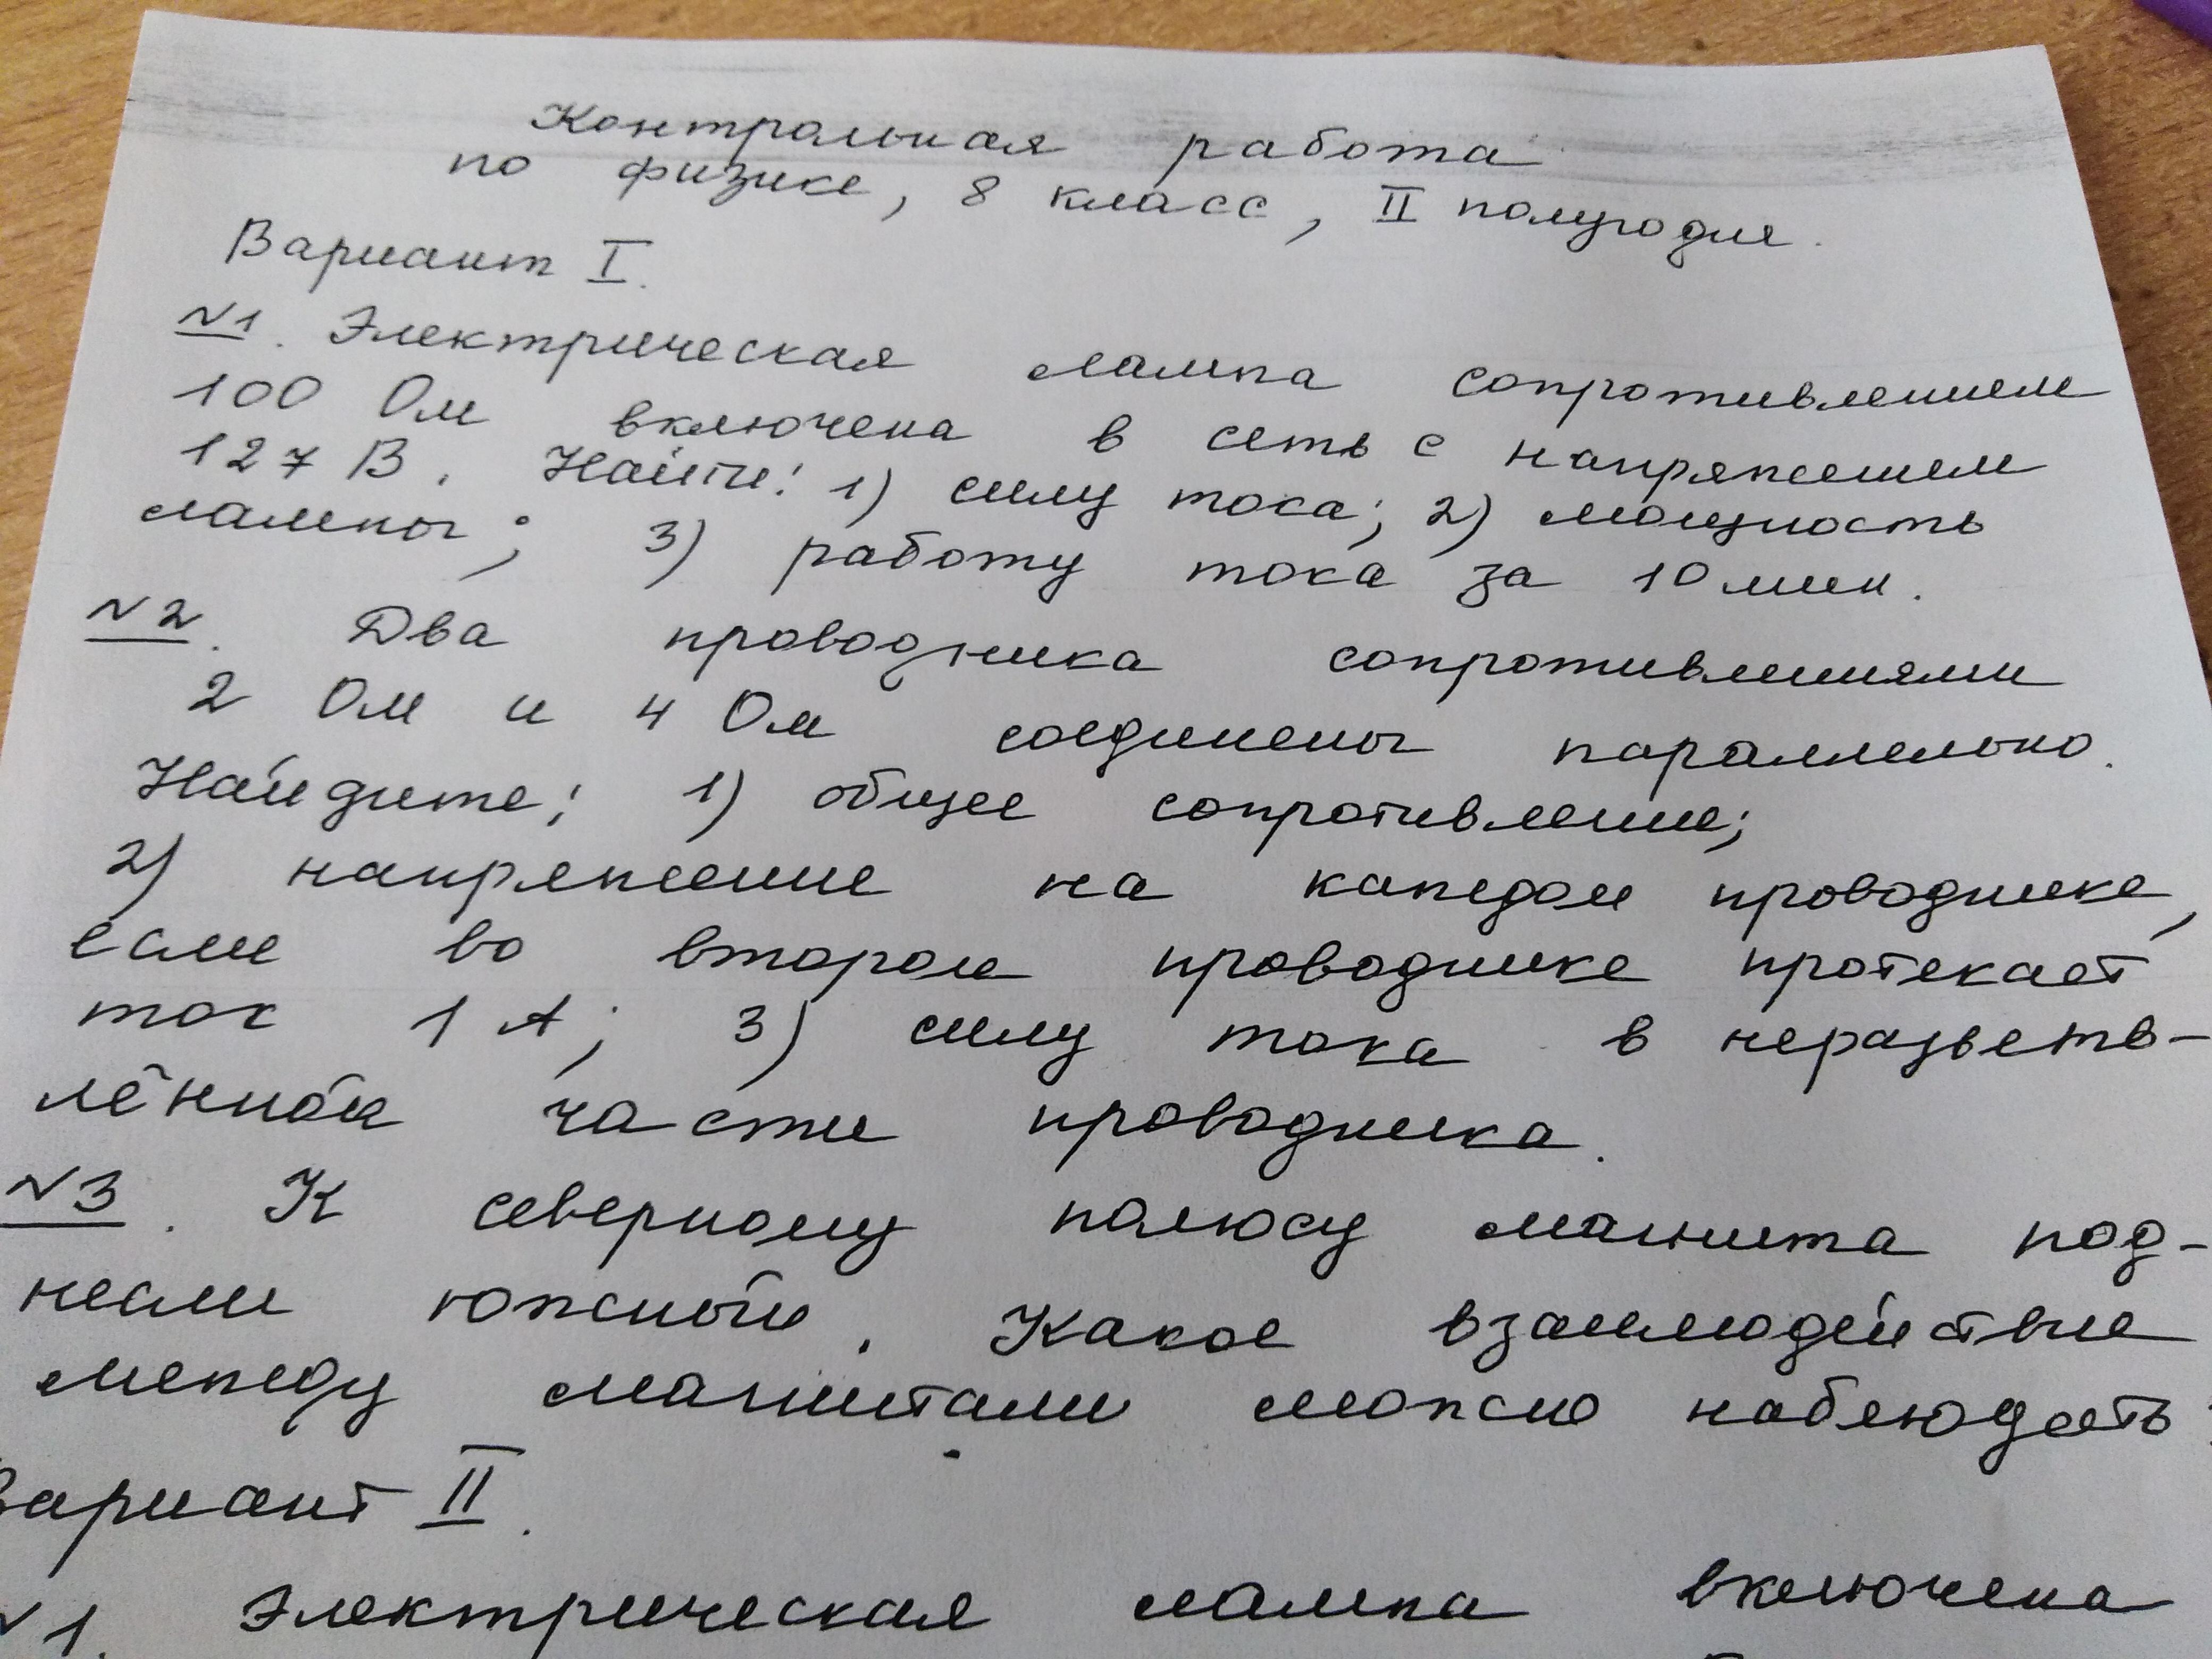 Контрольная работа
по физике, 8 класс, II полугодие.
Вариант I.
№1. Электрическая лампа сопротивлением
100 Ом включена в сеть с напряжением
127 В. Найти: 1) силу тока; 2) мощность
лампы; 3) работу тока за 10 мин.
№2. Два проводника сопротивлениями
2 Ом и 4 Ом соединены параллельно.
Найдите: 1) общее сопротивление;
2) напряжение на каждом проводнике,
если во втором проводнике протекает
ток 1 А; 3) силу тока в неразветв-
лённой части проводника.
№3. К северному полюсу магнита под-
несли южный. Какое взаимодействие
между магнитами можно наблюдать?
Вариант II.
№1. Электрическая лампа включена